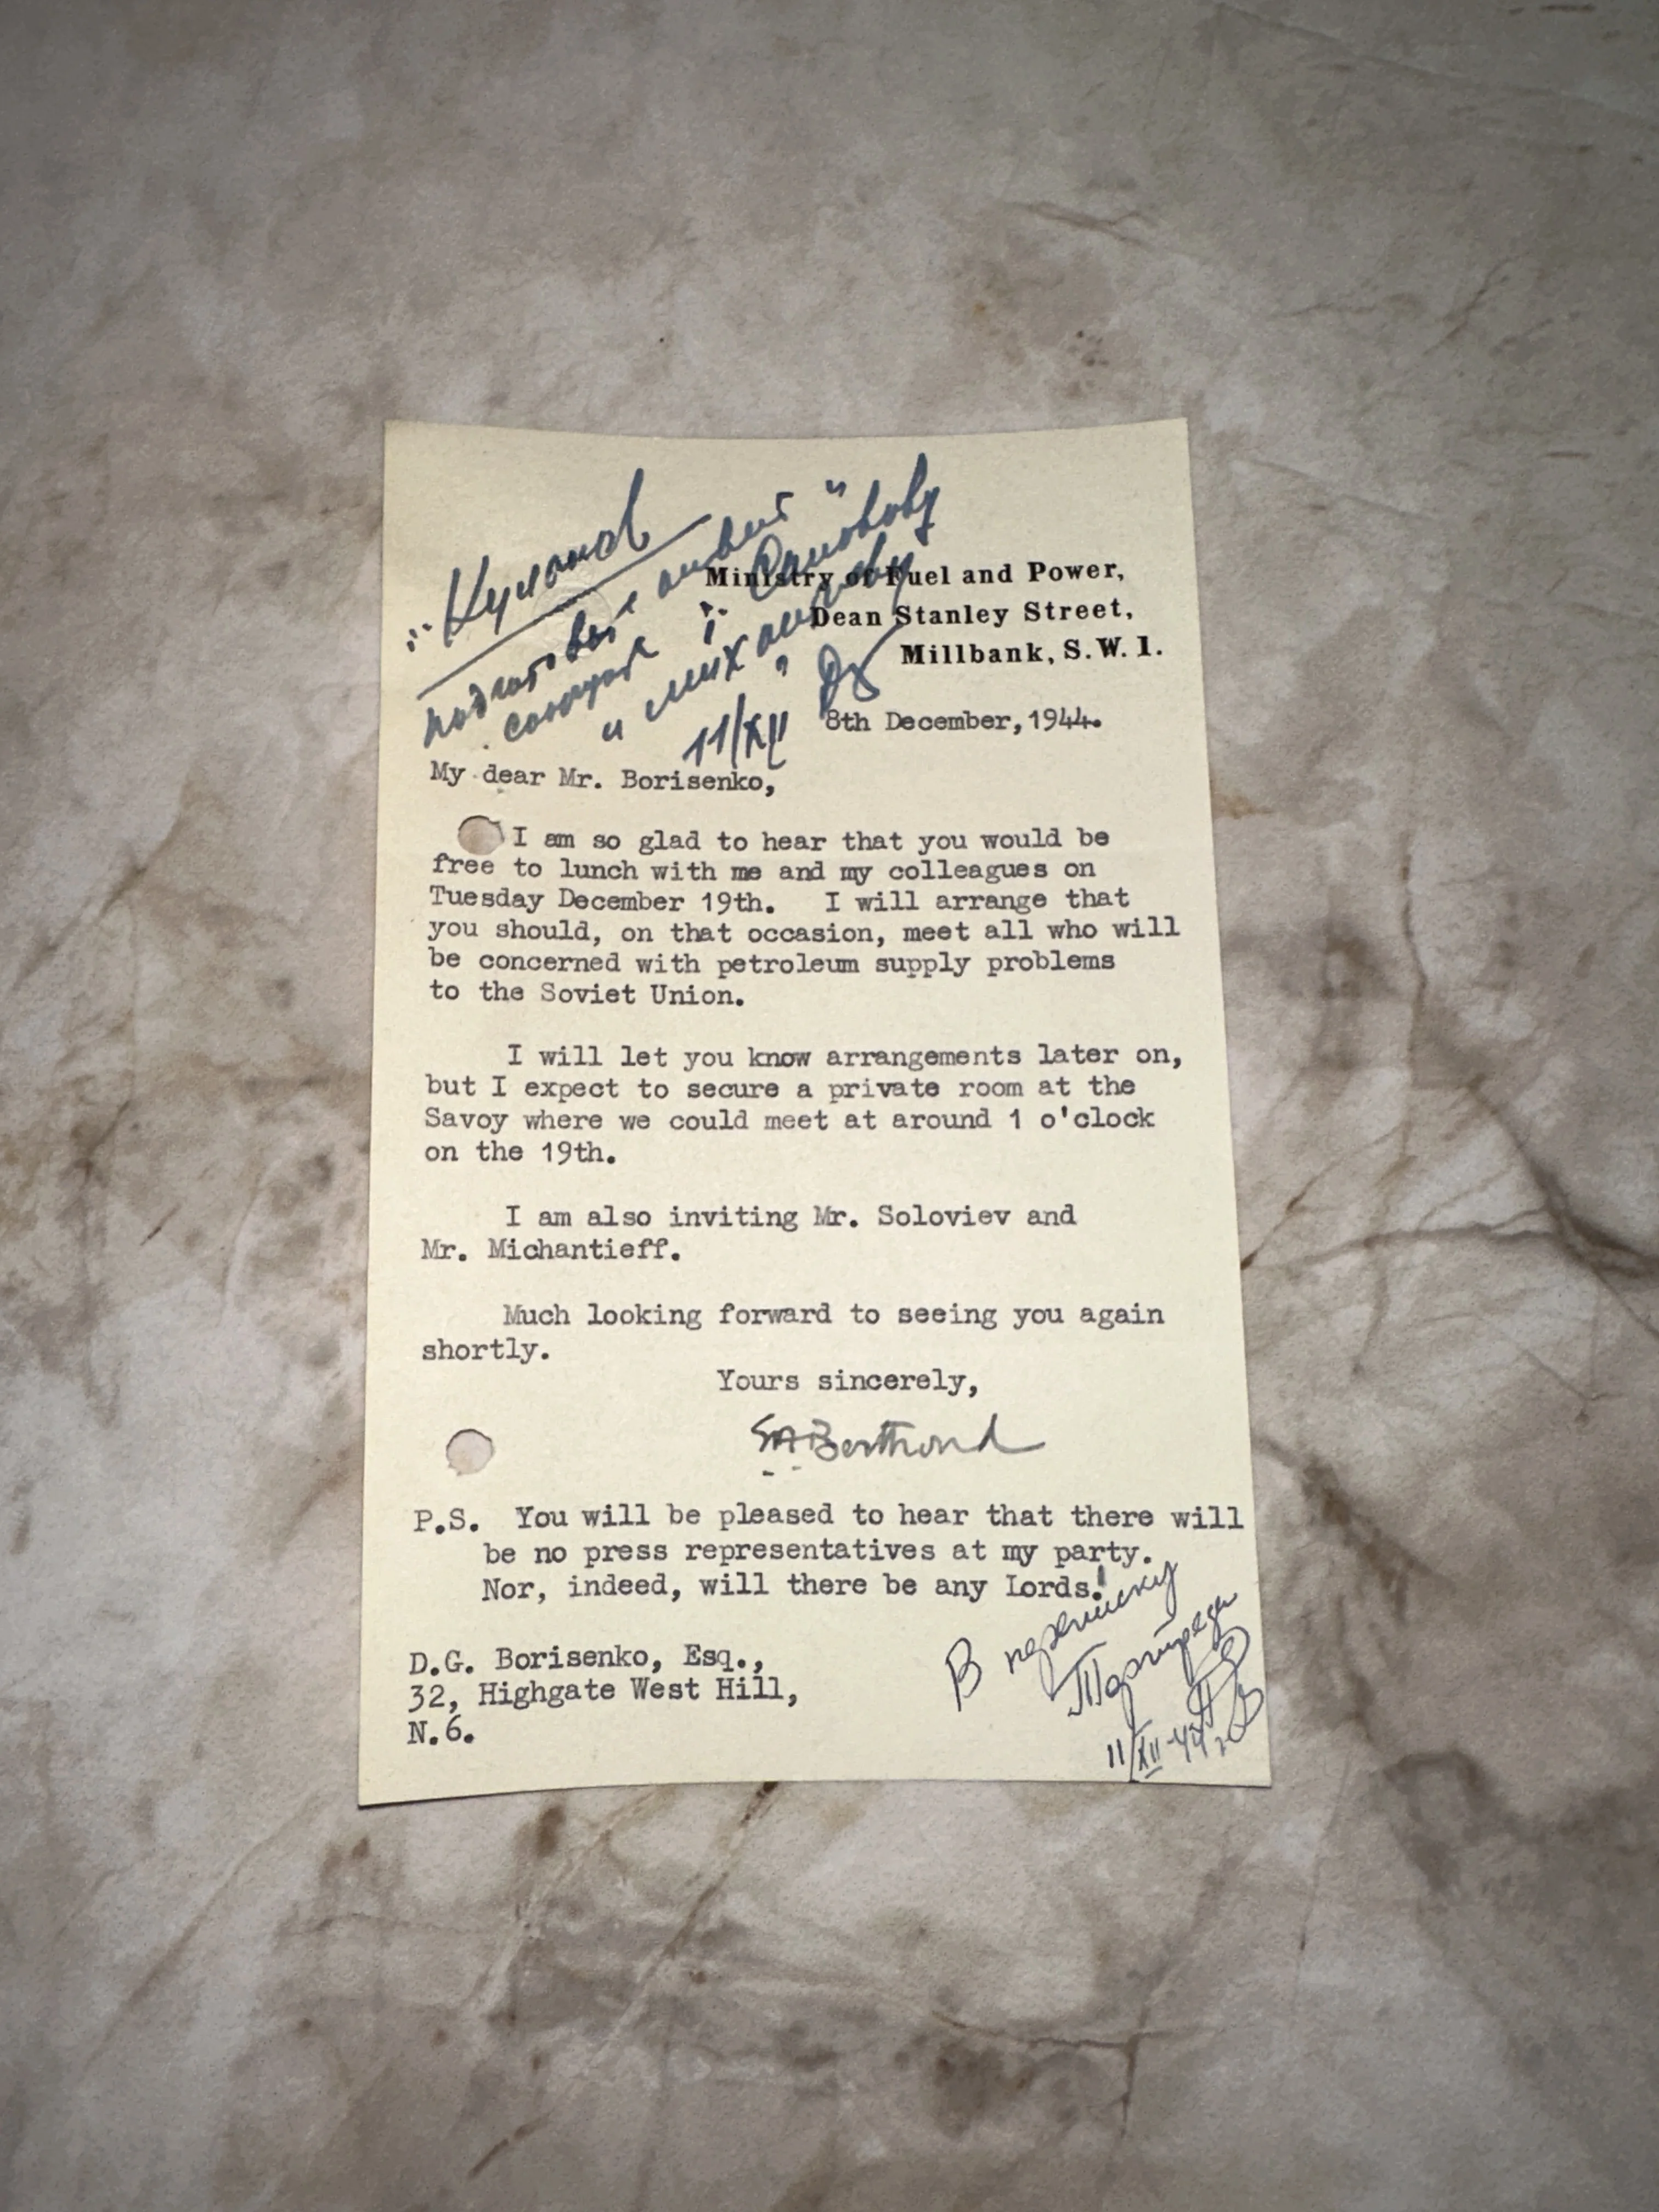 11/XII
Ministry of Fuel and Power,
Dean Stanley Street,
Millbank, S.W.1.
8th December, 1944.
My dear Mr. Borisenko,
I am so glad to hear that you would be
free to lunch with me and my colleagues on
Tuesday December 19th. I will arrange that
you should, on that occasion, meet all who will
be concerned with petroleum supply problems
to the Soviet Union.
I will let you know arrangements later on,
but I expect to secure a private room at the
Savoy where we could meet at around 1 o'clock
on the 19th.
I am also inviting Mr. Soloviev and
Mr. Michantieff.
Much looking forward to seeing you again
shortly.
Yours sincerely,
P.S. You will be pleased to hear that there will
be no press representatives at my party.
Nor, indeed, will there be any Lords!
В переписку
Торгпреда
11/XII-44г.
D.G. Borisenko, Esq.,
32, Highgate West Hill,
N.6.